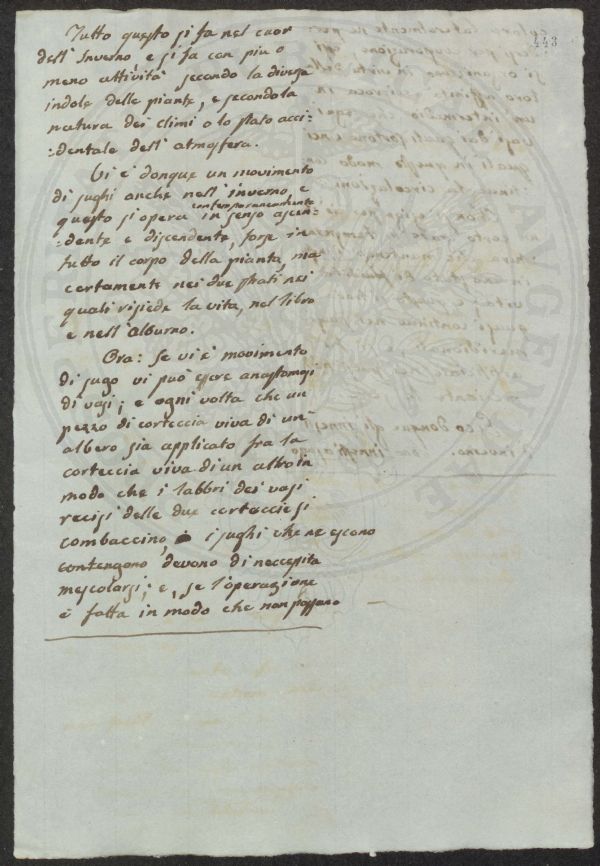 443
Tutto questo si fa nel cuor
dell'Inverno, e si fa con piu o
meno attività secondo la diversa
indole delle piante, e secondo la
natura dei climi o lo stato acci:
:dentale dell'atmosfera.
Vi è donque un movimento
di sughi anche nell'inverno, e
contemporaneamente
questo si opera in senso ascen:
:dente e discendente, forse in
tutto il corpo della pianta, ma
certamente nei due strati nei
quali risiede la vita, nel libro
e nell'alburno.
Ora: Se vi è movimento
di sugo vi può essere anastomosi
di vasi; e ogni volta che un
pezzo di corteccia viva di un
albero sia applicato fra la
corteccia viva di un altro in
modo che i labbri dei vasi
recisi delle due cortaccie si
combaccino, i sughi che ne escono
contengono devono di neccessita
mescolarsi; e, se l'operazione
è fatta in modo che non possano